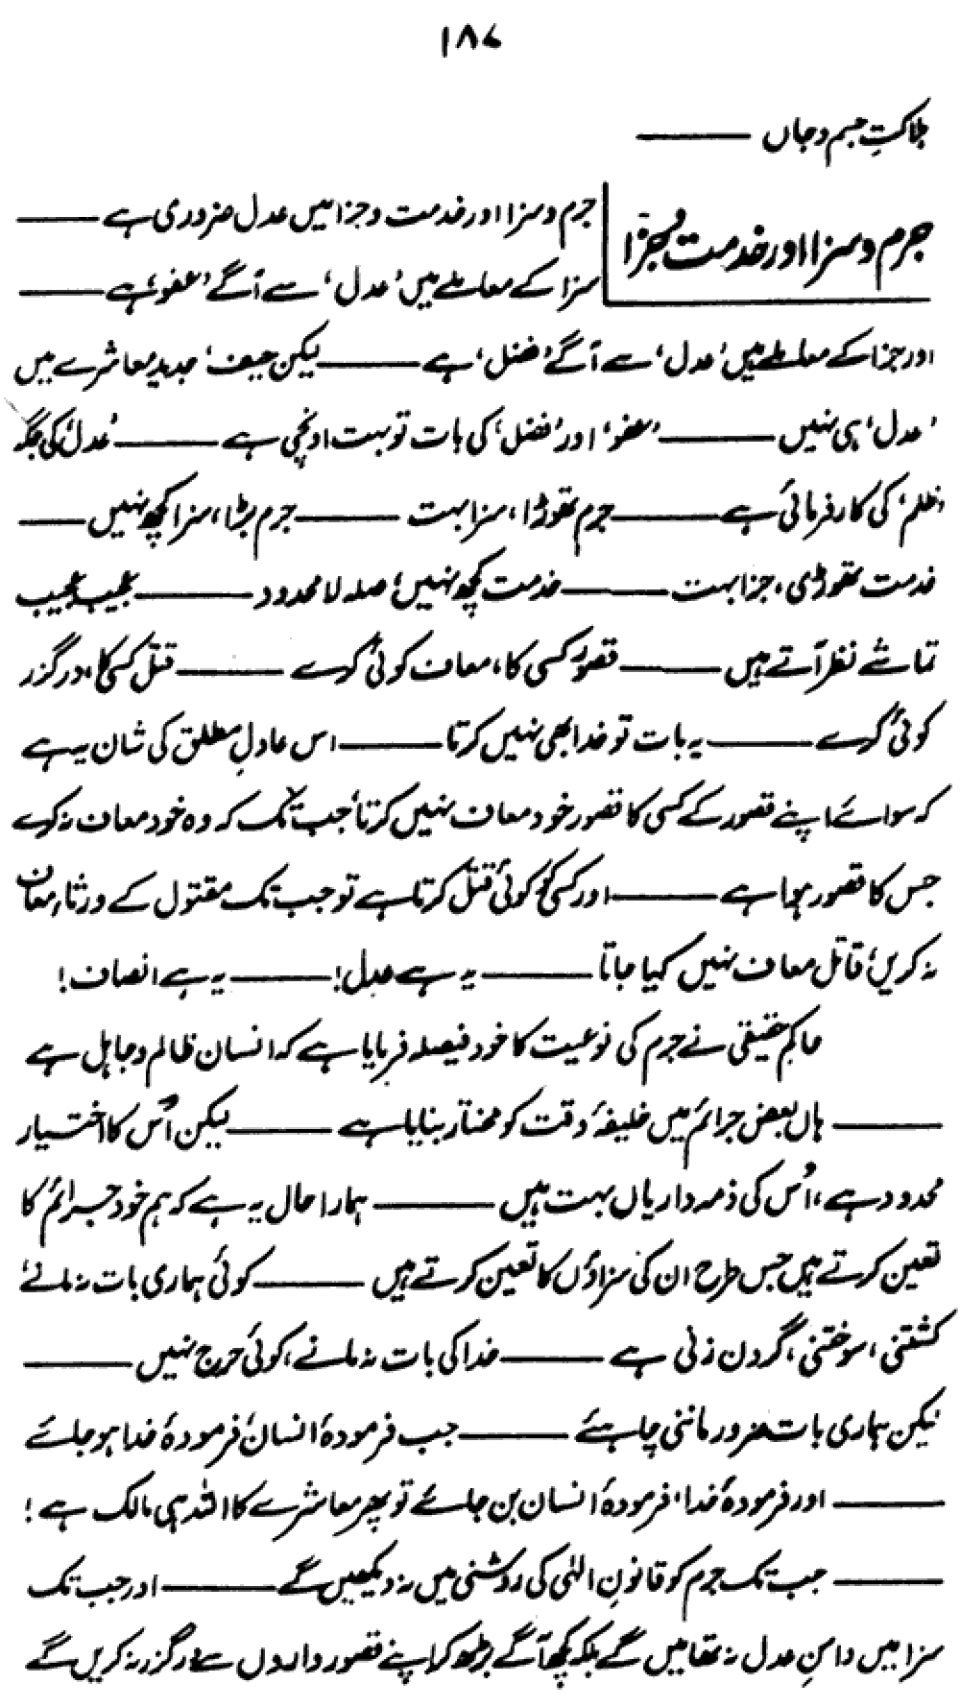 ۱۸۷
ہلاکتِ جسم و جاں ———
جرم و سزا اور خدمت و جزا
جرم و سزا اور خدمت و جزا میں عدل ضروری ہے ———
سزا کے معاملے میں ’عدل‘ سے آگے ’عفو‘ ہے ———
اور جزا کے معاملے میں ’عدل‘ سے آگے ’فضل‘ ہے ——— لیکن حیف‘ جدید معاشرے میں
’عدل‘ ہی نہیں ——— ’عفو‘ اور ’فضل‘ کی بات تو بہت اونچی ہے ——— ’عدل‘ کی جگہ
’ظلم‘ کی کارفرمائی ہے ——— جرم تھوڑا، سزا بہت ——— جرم بڑا، سزا کچھ نہیں ———
خدمت تھوڑی، جزا بہت ——— خدمت کچھ نہیں‘ صلہ لامحدود ——— عجیب عجیب
تماشے نظر آتے ہیں ——— قصور کسی کا، معاف کوئی کرے ——— قتل کسی کا، درگزر
کوئی کرے ——— یہ بات تو خدا بھی نہیں کرتا ——— اس عادلِ مطلق کی شان یہ ہے
کہ سوائے اپنے قصور کے کسی کا قصور خود معاف نہیں کرتا‘ جب تک کہ وہ خود معاف نہ کرے
جس کا قصور ہوا ہے ——— اور کسی کو کوئی قتل کرتا ہے تو جب تک مقتول کے ورثاء معاف
نہ کریں‘ قاتل معاف نہیں کیا جاتا ——— یہ ہے عدل! ——— یہ ہے انصاف!
حاکمِ حقیقی نے جرم کی نوعیت کا خود فیصلہ فرمایا ہے کہ انسان ظالم و جاہل ہے
——— ہاں بعض جرائم میں خلیفۂ وقت کو مختار بنایا ہے ——— لیکن اُس کا اختیار
محدود ہے، اُس کی ذمہ داریاں بہت ہیں ——— ہمارا حال یہ ہے کہ ہم خود جرائم کا
تعین کرتے ہیں جس طرح ان کی سزاؤں کا تعین کرتے ہیں ——— کوئی ہماری بات نہ مانے‘
کشتنی، سوختنی، گردن زنی ہے ——— خدا کی بات نہ مانے، کوئی حرج نہیں ———
لیکن ہماری بات ضرور ماننی چاہئے ——— جب فرمودۂ انسان‘ فرمودۂ خدا ہو جائے
——— اور فرمودۂ خدا‘ فرمودۂ انسان بن جائے تو پھر معاشرے کا اللہ ہی مالک ہے!
——— جب تک جرم کو قانونِ الٰہی کی روشنی میں نہ دیکھیں گے ——— اور جب تک
سزا میں دامنِ عدل نہ تھامیں گے بلکہ کچھ آگے بڑھ کر اپنے قصور داروں سے درگزر نہ کریں گے